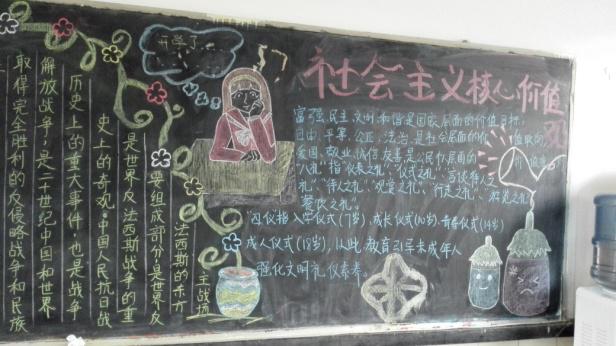 取得完全胜利的反侵略战争和民族
解放战争,是二十世纪中国和世界
历史上的重大事件,也是战争
史上的奇观。中国人民抗日战
是世界反法西斯战争的重
要组成部分,是世界反
法西斯的东方
主战场
开学了
社会主义核心价值观
富强、民主、文明、和谐是国家层面的价值目标,
自由、平等、公正、法治、是社会层面的价值取向
爱国、敬业、诚信、友善是公民个人层面的价值准
"八礼"指"仪表之礼"、"仪式之礼"、"言谈之礼
"、"待人之礼"、"观赏之礼"、"行走之礼"、"游览之礼"
餐饮之礼"。
"四仪指入学仪式(7岁),成长仪式(10岁),青春仪式(14岁)
成人仪式(18岁),从此教育引导未成年人
强化文明礼仪素养。